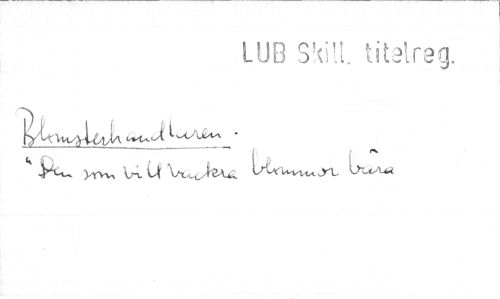 LUB Skill. titelreg.
Blomsterhandlaren.
"Den som vill vackra blommor bära